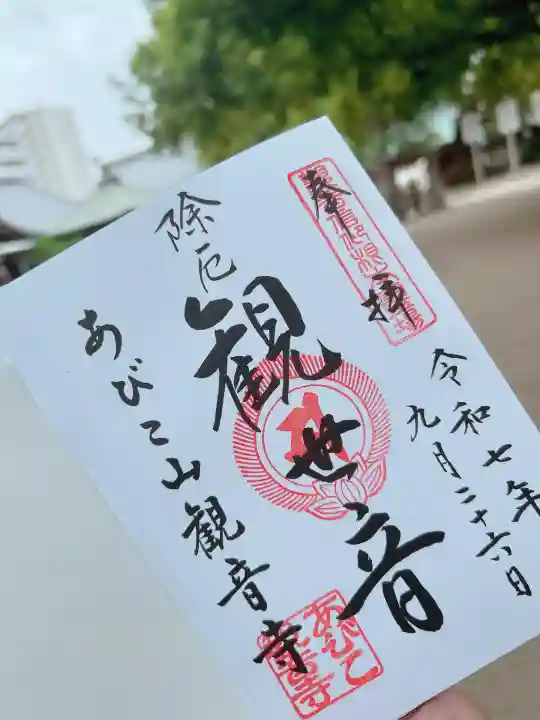 奉拝
令和七年
九月二十六日
除厄
観世音
あびこ山観音寺
あびこ